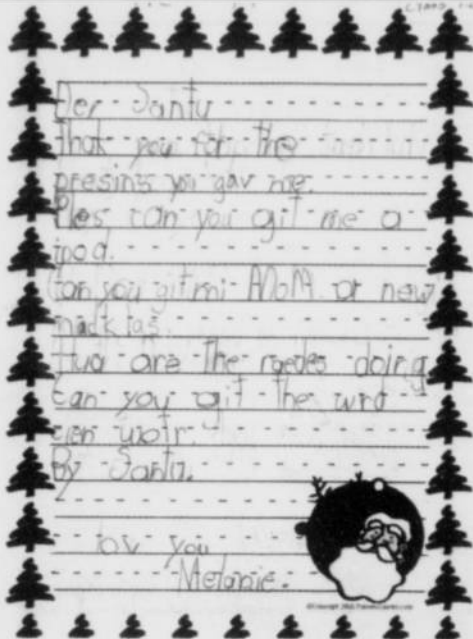 Der Santu
Thak you for the
presins you gav me.
Ples can you git me a
ipod.
Can you git mi MoM a new
nacklas.
Hua are the raedes doing
can you git the wrd
clen wotr.
By Santu.
lov you
Melanie.